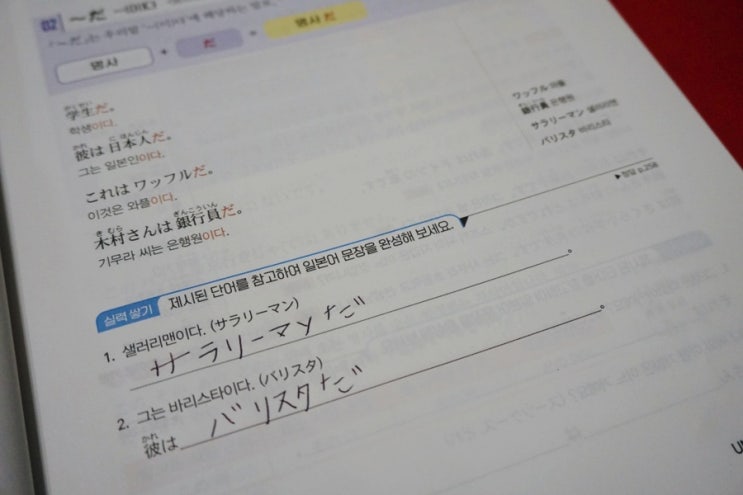 02 ~だ ~(이)다
「~だ」는 우리말 '~(이)다'에 해당하는 말로,
명사 + だ = 명사だ
がくせい
学生だ。
학생이다.
かれ にほんじん
彼は 日本人だ。
그는 일본인이다.
これは ワッフルだ。
이것은 와플이다.
きむら ぎんこういん
木村さんは 銀行員だ。
기무라 씨는 은행원이다.
ワッフル 와플
ぎんこういん
銀行員 은행원
サラリーマン 샐러리맨
バリスタ 바리스타
▶정답 p.258
실력 쌓기 제시된 단어를 참고하여 일본어 문장을 완성해 보세요.
1. 샐러리맨이다. (サラリーマン)
サラリーマンだ。
2. 그는 바리스타이다. (バリスタ)
かれ
彼は バリスタだ。